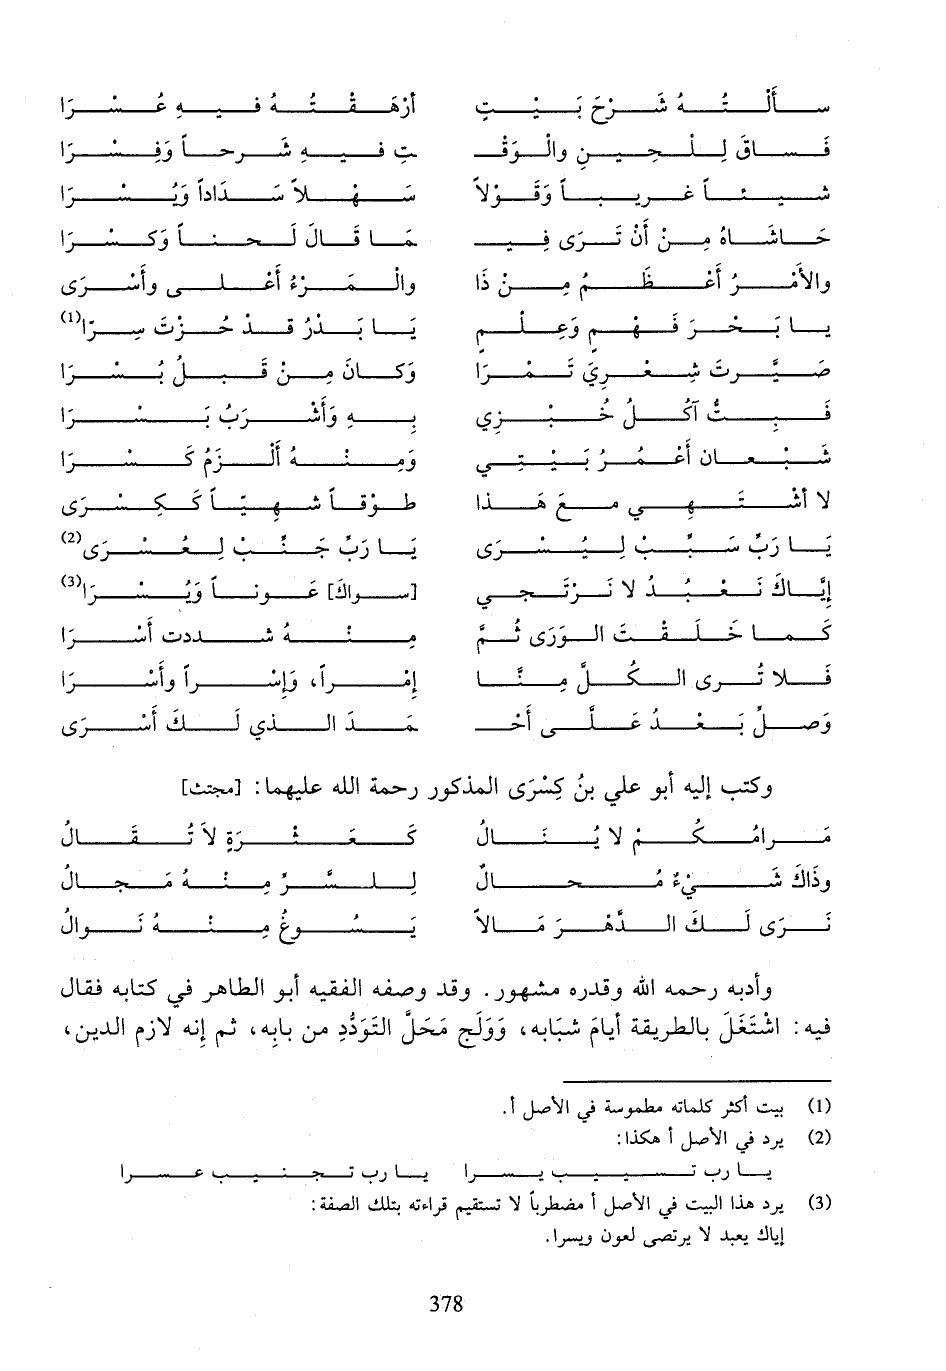 سَأَلْتُهُ شَرْحَ بَيْتٍ أَرْهَقْتُهُ فِيهِ عُسْرَا
فَسَاقَ لِلْحِينِ والْوَقْـ ـتِ فيهِ شَرحاً وَفِسْرَا
شيئاً غريباً وَقَوْلاً سَهْلاً سَدَاداً وَيُسْرَا
حَاشَاهُ مِنْ أَنْ تَرَى فِيـ ـمَا قَالَ لَحناً وَكسْرَا
والأمْرُ أَعْظَمُ مِنْ ذَا والْمَرْءُ أَعْلى وأَسْرَى
يا بَحْرَ فَهْمٍ وَعِلْمٍ يَا بَدْرُ قدْ حُزْتَ سِرَّا(1)
صَيَّرتَ شِعْرِيَ تَمْرَا وَكانَ مِنْ قَبْلُ بُسْرَا
فَبِتُّ آكُلُ خُبْزِي بِهِ وَأَشْرَبُ بَسْرَا
شَبْعان أَعْمُرُ بَيْتِي وَمِنْهُ أَلْزَمُ كَسْرَا
لا أشْتَهِي معَ هَذا طوْقاً شهِيّاً كَكِسْرَى
يَا رَبِّ سَبِّبْ لِيُسْرَى يَا رَبِّ جَنِّبْ لِعُسْرَى(2)
إِيَّاكَ نَعْبُدُ لا نَرْتَجي [سواكَ] عَوناً وَيُسْرَا(3)
كَما خَلَقْتَ الوَرَى ثُمَّ مِنْهُ شددت أَسْرَا
فَلا تُرى الكُلَّ مِنَّا إِمْراً، وَإِسْراً وأَسْرَا
وَصلِّ بَعْدُ عَلَى أَحْـ ـمَدَ الذي لَكَ أَسْرَى
وكتب إليه أبو علي بنُ كِسْرَى المذكور رحمة الله عليهما: [مجتث]
مَرامُكُمْ لا يُنَالُ كَعَثْرَةٍ لاَ تُقَالُ
وذَاكَ شَيْءٌ مُحالٌ لِلسِّرِّ مِنْهُ مَجالُ
نَرَى لَكَ الدَّهْرَ مَالاً يَسُوغُ مِنْهُ نَوالُ
وأدبه رحمه الله وقدره مشهور. وقد وصفه الفقيه أبو الطاهر في كتابه فقال
فيه: اشْتَغَلَ بالطريقة أيامَ شبَابه، وَوَلَج مَحَلَّ التَوَدُّدِ من بابِه، ثم إنه لازم الدين،
(1) بيت أكثر كلماته مطموسة في الأصل أ.
(2) يرد في الأصل أ هكذا:
يا رب تسبيب يسرا يا رب تجنيب عسرا
(3) يرد هذا البيت في الأصل أ مضطرباً لا تستقيم قراءته بتلك الصفة:
إياك يعبد لا يرتصى لعون ويسرا.
378